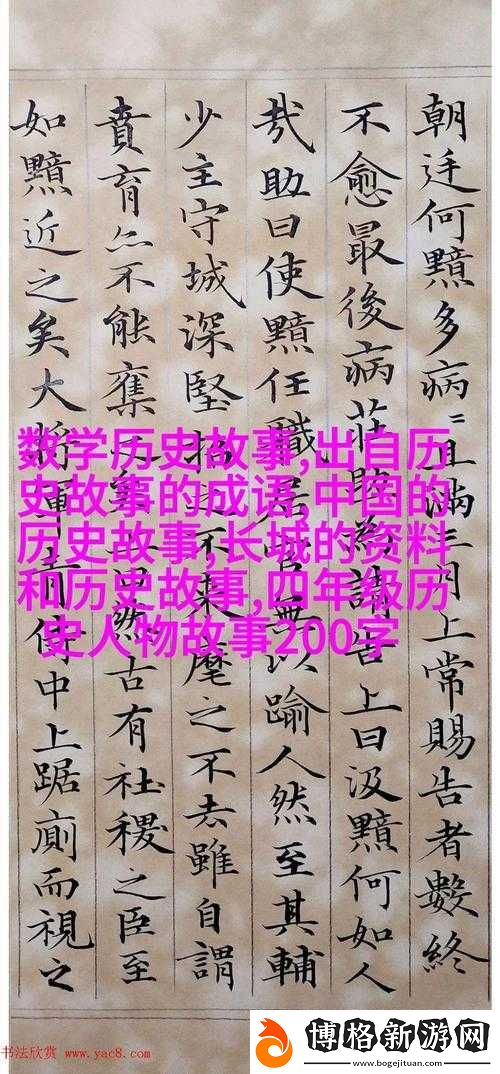 朝廷何黯多病〻且滿三月上常賜告者數終
不愈最後病莊助為請告上曰汲黯何如人
哉助曰使黯任職居官無以踰人然至其輔
少主守城深堅招之不來麾之不去雖自謂
賁育亦不能奪之然古有社稷之臣至
如黯近之矣大將軍青侍中上踞廁而視之
数学历史故事,出自历
史故事的成语,中国的
历史故事,长城的资料
和历史故事,四年级历
史人物故事200字
书法欣赏 www.yac8.com
博格新游网
www.bogejituan.com